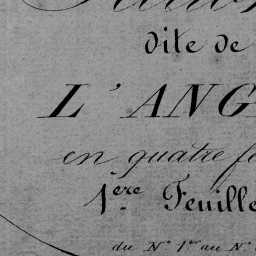 dite de
L'ANG
en quatre f
1ère Feuille
du N° 1er au N°